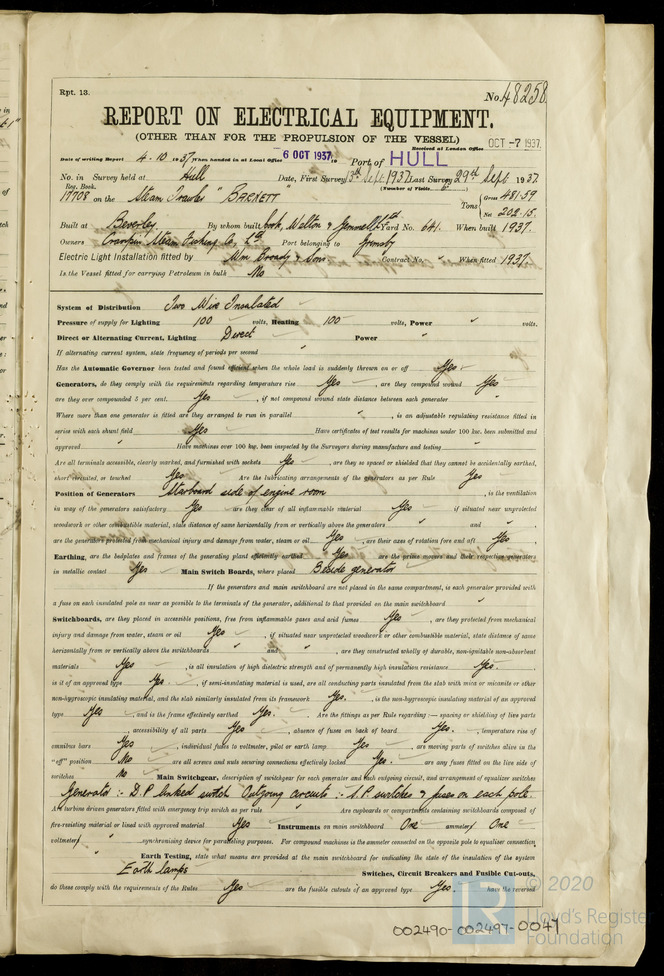 Rpt. 13.
No. 48258
REPORT ON ELECTRICAL EQUIPMENT.
(OTHER THAN FOR THE PROPULSION OF THE VESSEL)
Received at London Office OCT -7 1937
Date of writing Report 4. 10 1937 When handed in at Local Office 6 OCT 1937 Port of HULL
No. in Survey held at Hull Date, First Survey 13th Sept 1937 Last Survey 29th Sept 1937
Reg. Book. (Number of Visits 6)
17708 on the Steam Trawler "BARNETT" Tons Gross 481.59 Net 202.15
Built at Beverley By whom built Cook, Welton & Gemmell Ltd Yard No. 641. When built 1937.
Owners Crampin Steam Fishing Co. Ltd Port belonging to Grimsby
Electric Light Installation fitted by Wm Broady & Sons Contract No. " When fitted 1937.
Is the Vessel fitted for carrying Petroleum in bulk No
System of Distribution Two Wire Insulated
Pressure of supply for Lighting 100 volts, Heating 100 volts, Power " volts.
Direct or Alternating Current, Lighting Direct Power "
If alternating current system, state frequency of periods per second "
Has the Automatic Governor been tested and found efficient when the whole load is suddenly thrown on or off Yes
Generators, do they comply with the requirements regarding temperature rise Yes, are they compound wound Yes
are they over compounded 5 per cent. Yes, if not compound wound state distance between each generator "
Where more than one generator is fitted are they arranged to run in parallel ", is an adjustable regulating resistance fitted in
series with each shunt field Yes Have certificates of test results for machines under 100 kw. been submitted and
approved " Have machines over 100 kw. been inspected by the Surveyors during manufacture and testing "
Are all terminals accessible, clearly marked, and furnished with sockets Yes, are they so spaced or shielded that they cannot be accidentally earthed,
short circuited, or touched Yes Are the lubricating arrangements of the generators as per Rule Yes
Position of Generators Starboard side of engine room, is the ventilation
in way of the generators satisfactory Yes are they clear of all inflammable material Yes if situated near unprotected
woodwork or other combustible material, state distance of same horizontally from or vertically above the generators " and "
are the generators protected from mechanical injury and damage from water, steam or oil Yes, are their axes of rotation fore and aft Yes
Earthing, are the bedplates and frames of the generating plant efficiently earthed Yes are the prime movers and their respective generators
in metallic contact Yes Main Switch Boards, where placed Beside generator
If the generators and main switchboard are not placed in the same compartment, is each generator provided with
a fuse on each insulated pole as near as possible to the terminals of the generator, additional to that provided on the main switchboard "
Switchboards, are they placed in accessible positions, free from inflammable gases and acid fumes Yes, are they protected from mechanical
injury and damage from water, steam or oil Yes, if situated near unprotected woodwork or other combustible material, state distance of same
horizontally from or vertically above the switchboards " and ", are they constructed wholly of durable, non-ignitable non-absorbent
materials Yes, is all insulation of high dielectric strength and of permanently high insulation resistance Yes.
is it of an approved type Yes, if semi-insulating material is used, are all conducting parts insulated from the slab with mica or micanite or other
non-hygroscopic insulating material, and the slab similarly insulated from its framework Yes., is the non-hygroscopic insulating material of an approved
type Yes, and is the frame effectively earthed Yes. Are the fittings as per Rule regarding :— spacing or shielding of live parts
, accessibility of all parts Yes, absence of fuses on back of board Yes., temperature rise of
omnibus bars Yes, individual fuses to voltmeter, pilot or earth lamp Yes, are moving parts of switches alive in the
"off" position No are all screws and nuts securing connections effectively locked Yes. are any fuses fitted on the live side of
switches No Main Switchgear, description of switchgear for each generator and each outgoing circuit, and arrangement of equaliser switches
Generator :- D.P. linked switch Outgoing circuits :- S.P. switches & fuses on each pole.
Are turbine driven generators fitted with emergency trip switch as per rule " Are cupboards or compartments containing switchboards composed of
fire-resisting material or lined with approved material Yes Instruments on main switchboard One ammeter One
voltmeter " synchronising device for paralleling purposes. For compound machines is the ammeter connected on the opposite pole to equaliser connection
" Earth Testing, state what means are provided at the main switchboard for indicating the state of the insulation of the system
Earth lamps Switches, Circuit Breakers and Fusible Cut-outs,
do these comply with the requirements of the Rules Yes are the fusible cutouts of an approved type Yes. have the reversed
© 2020
Lloyd's Register
Foundation
002490-002497-0047